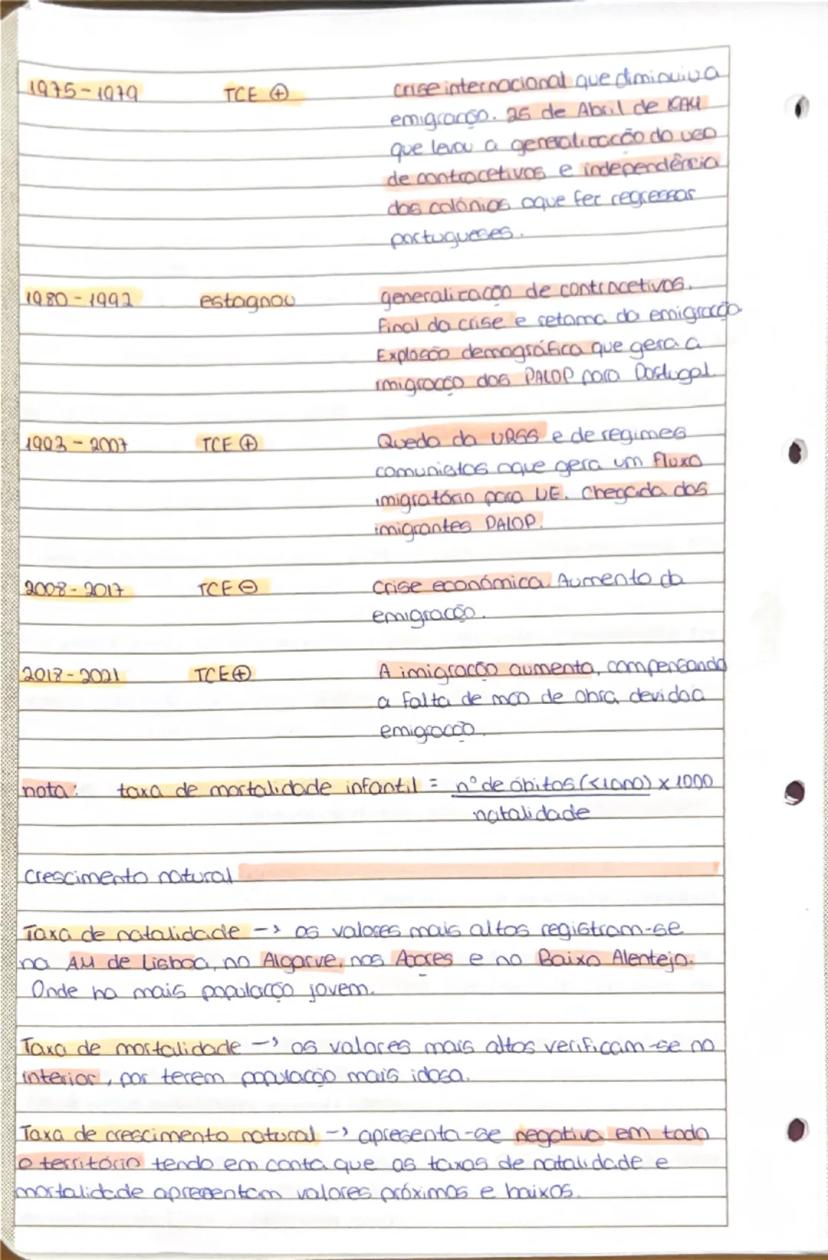 1975-1979 TCE ⊕ crise internacional que diminuiu a
emigração. 25 de Abril de 1974
que levou a generalização do uso
de contracetivos e independência
das colónias oque fez regressar
portugueses.
1980-1992 estagnou generalização de contracetivos.
Final da crise e retoma da emigração
Explosão demográfica que gera a
imigração dos PALOP para Portugal.
1993-2007 TCE ⊕ Queda da URSS e de regimes
comunistas oque gera um fluxo
imigratório para UE. Chegada dos
imigrantes PALOP.
2008-2017 TCE ⊖ Crise económica. Aumento da
emigração.
2018-2021 TCE ⊕ A imigração aumenta, compensando
a falta de mão de obra devido a
emigração.
nota: taxa de mortalidade infantil = nº de óbitos (<1ano) x 1000
natalidade
crescimento natural
Taxa de natalidade -> os valores mais altos registram-se
na AM de Lisboa, no Algarve, nos Açores e no Baixo Alentejo.
Onde há mais população jovem.
Taxa de mortalidade -> os valores mais altos verificam-se no
interior, por terem população mais idosa.
Taxa de crescimento natural -> apresenta-se negativa em todo
o território tendo em conta que as taxas de natalidade e
mortalidade apresentam valores próximos e baixos.